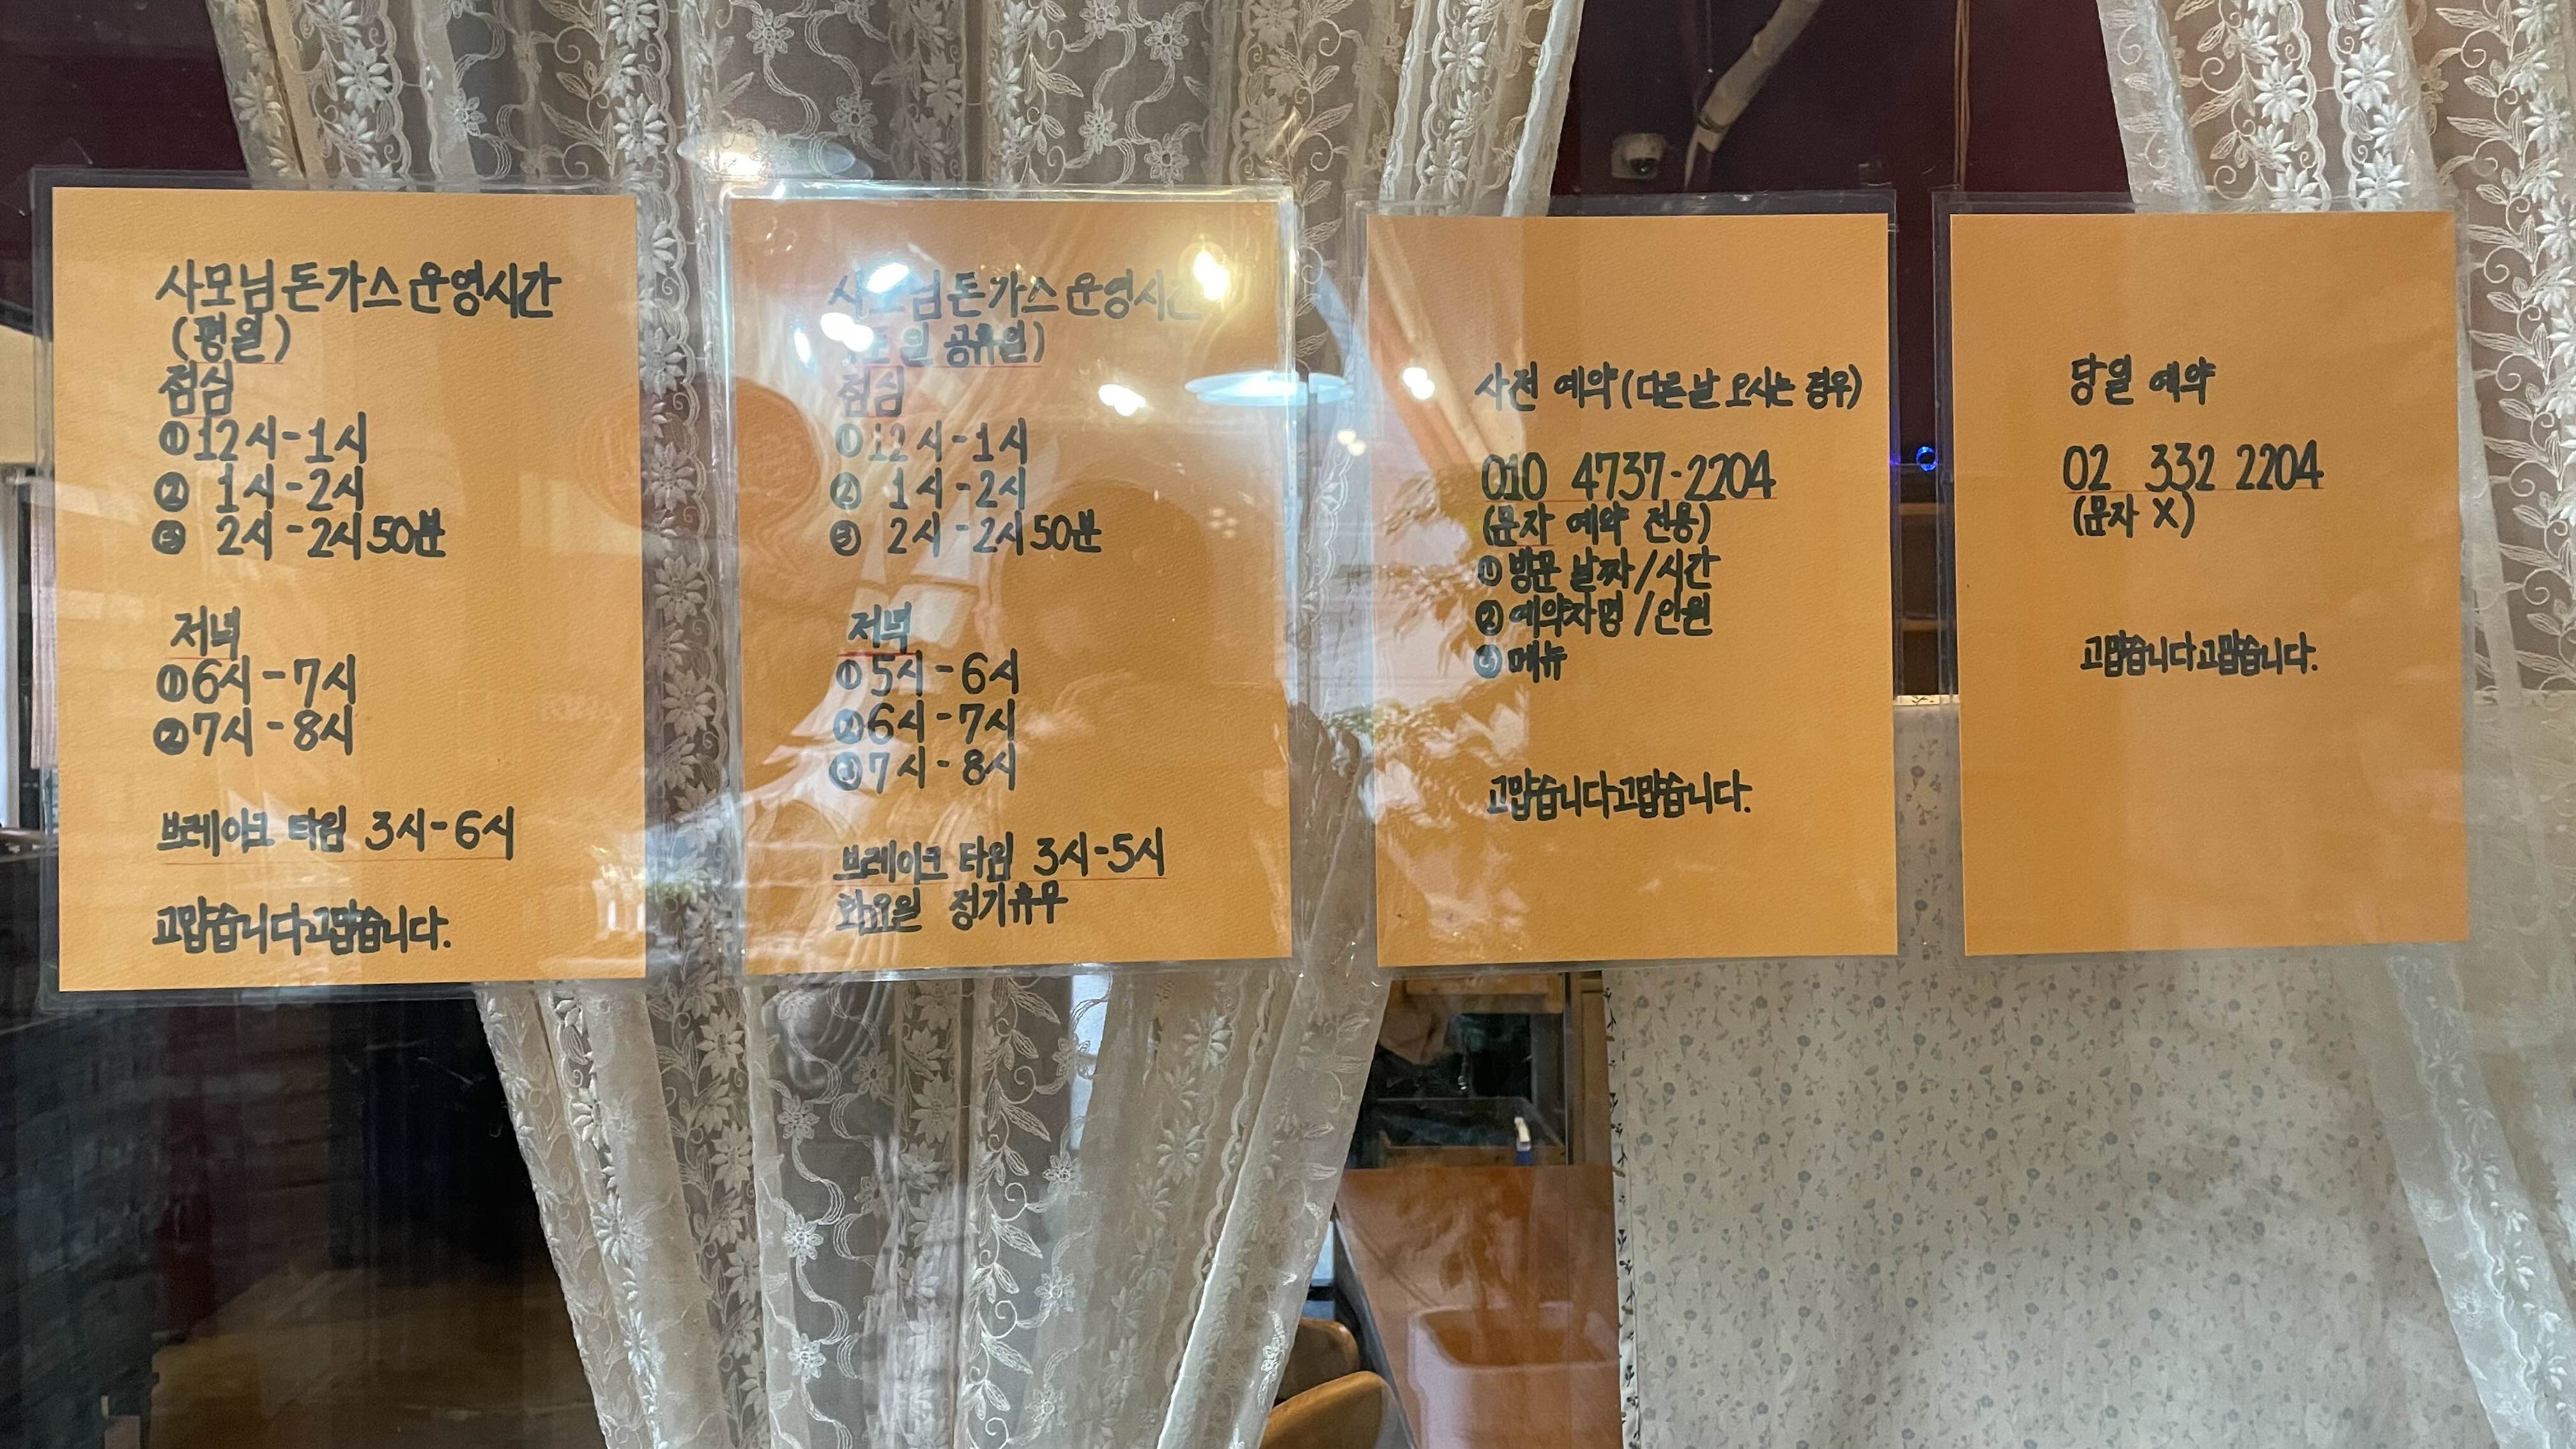 사모님돈가스 운영시간
(평일)
점심
①12시-1시
② 1시-2시
③ 2시-2시50분
저녁
①6시-7시
②7시-8시
브레이크 타임 3시-6시
고맙습니다고맙습니다.
사모님돈가스 운영시간
일 공휴일)
점심
①12시-1시
② 1시-2시
③ 2시-2시50분
저녁
①5시-6시
②6시-7시
③7시-8시
브레이크 타임 3시-5시
화요일 정기휴무
사전 예약(다른날 오시는 경우)
010 4737-2204
(문자 예약 전용)
①방문 날짜/시간
②예약자명/인원
③메뉴
고맙습니다고맙습니다.
당일 예약
02 332 2204
(문자 X)
고맙습니다고맙습니다.